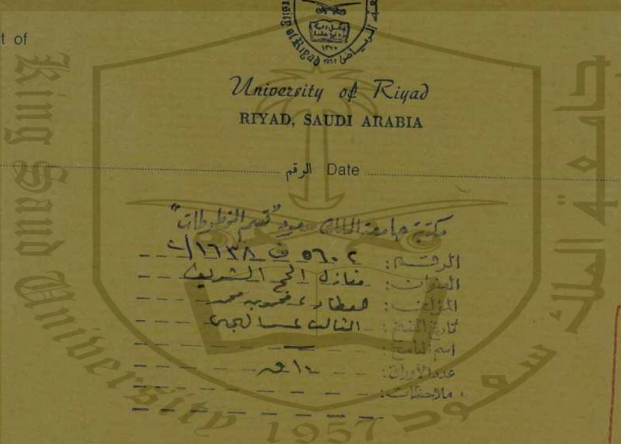 t of
University of Riyad
RIYAD, SAUDI ARABIA
الرقم Date
مكتبة جامعة الملك سعود "قسم المخطوطات"
الرقم: ٥٦٠٢ ف ١٦٣٨/٢
العنوان: منازل الحج الشريف
المؤلف: العطار، محمد
تاريخ النسخ: الثالث عشر الهجري
اسم الناسخ:
عدد الأوراق: ١٠ ق
ملاحظات:
King Saud University
جامعة الملك سعود
1957